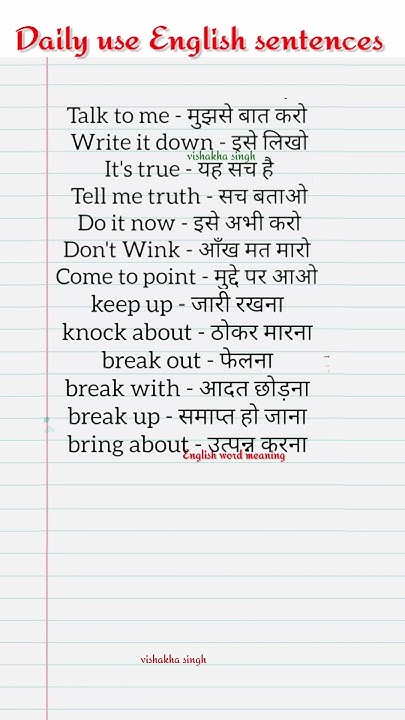 Daily use English sentences
Talk to me - मुझसे बात करो
Write it down - इसे लिखो
vishakha singh
It's true - यह सच है
Tell me truth - सच बताओ
Do it now - इसे अभी करो
Don't Wink - आँख मत मारो
Come to point - मुद्दे पर आओ
keep up - जारी रखना
knock about - ठोकर मारना
break out - फेलना
break with - आदत छोड़ना
break up - समाप्त हो जाना
bring about - उत्पन्न करना
English word meaning
vishakha singh